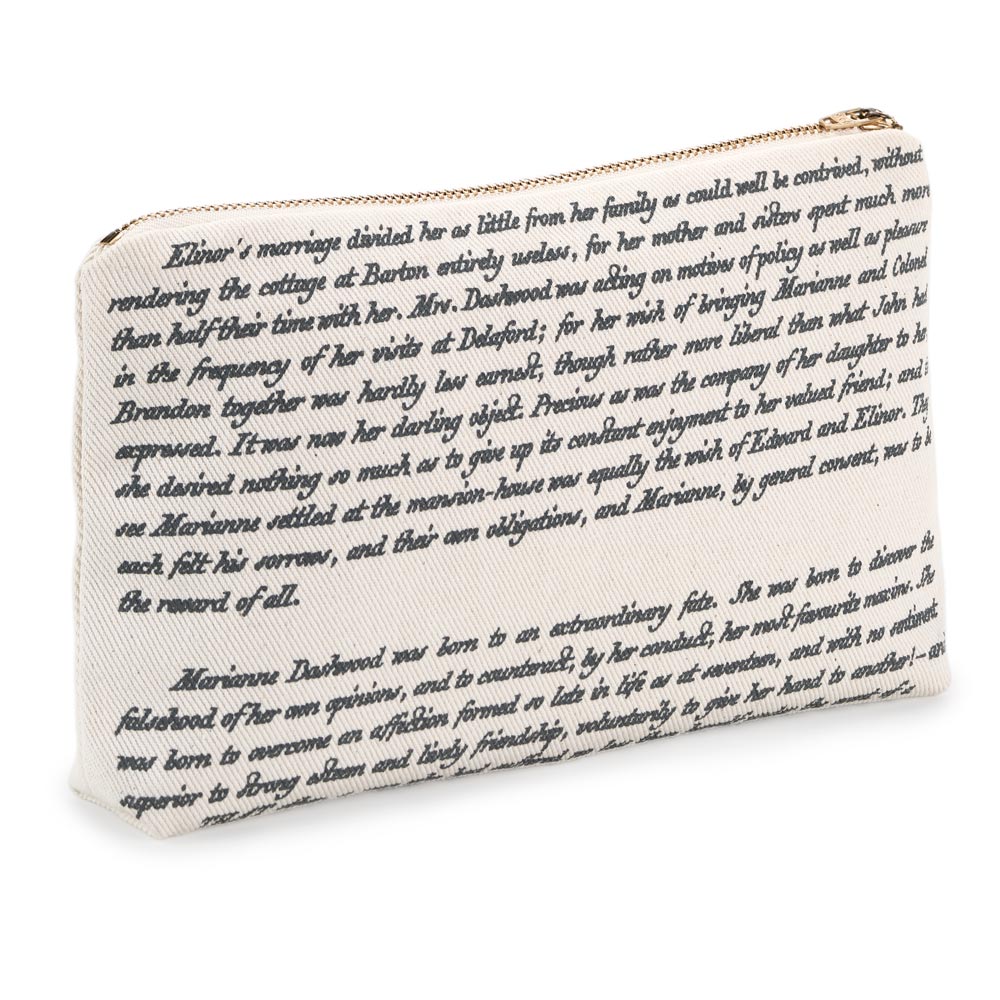 Elinor's marriage divided her as little from her family as could well be contrived, without
rendering the cottage at Barton entirely useless, for her mother and sisters spent much more
than half their time with her. Mrs. Dashwood was acting on motives of policy as well as pleasure
in the frequency of her visits at Delaford; for her wish of bringing Marianne and Colonel
Brandon together was hardly less earnest, though rather more liberal than what John had
expressed. It was now her darling object. Precious as was the company of her daughter to he
she desired nothing so much as to give up its constant enjoyment to her valued friend; and
see Marianne settled at the mansion-house was equally the wish of Edward and Elinor. They
each felt his sorrows, and their own obligations, and Marianne, by general consent, was to be
the reward of all.
Marianne Dashwood was born to an extraordinary fate. She was born to discover the
falsehood of her own opinions, and to counteract, by her conduct, her most favourite maxims. She
was born to overcome an affection formed so late in life as at seventeen, and with no sentiment
superior to strong esteem and lively friendship, voluntarily to give her hand to another!—and